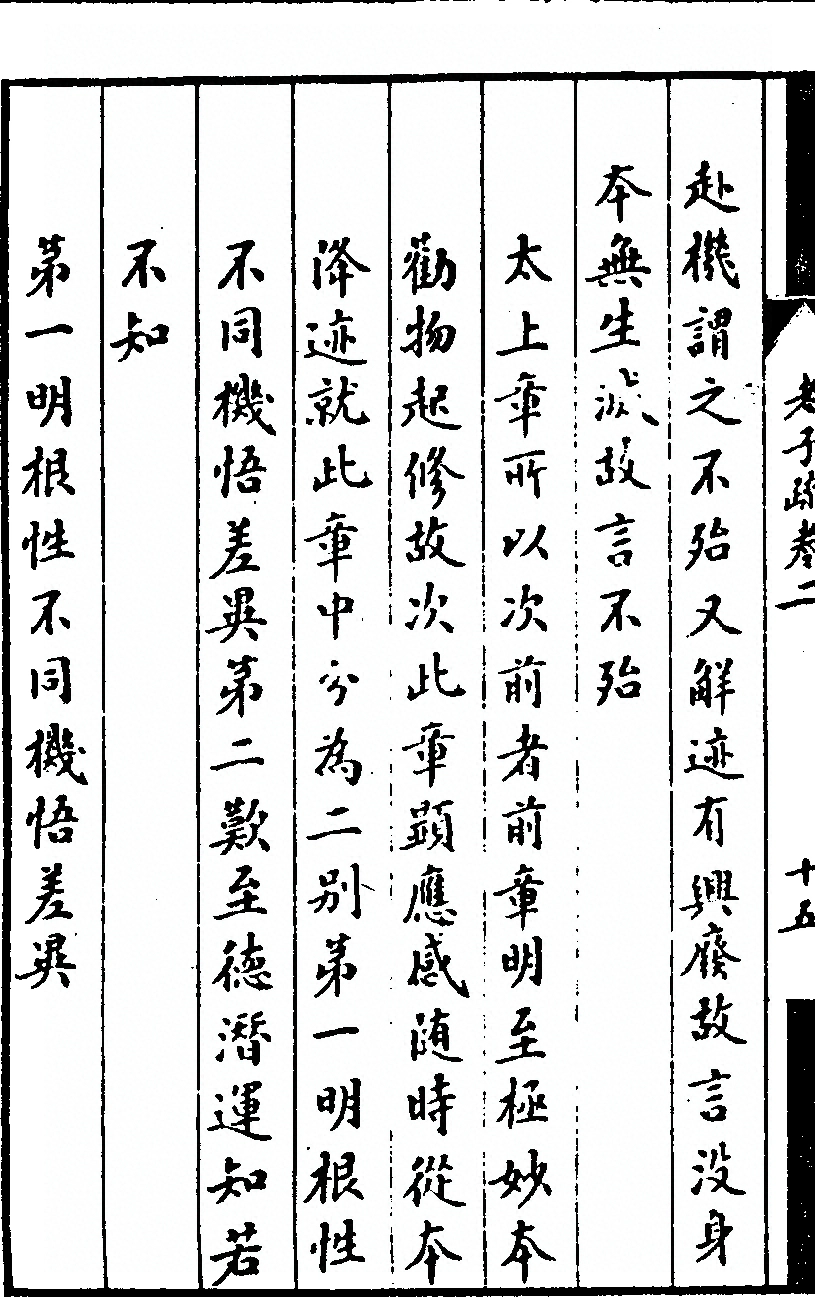 老子疏卷二
十五
赴機謂之不殆又解迹有興廢故言没身
本無生滅故言不殆
太上章所以次前者前章明至極妙本
勸物起修故次此章顯應感随時從本
降迹就此章中分為二别第一明根性
不同機悟差異第二歎至德潛運知若
不知
第一明根性不同機悟差異